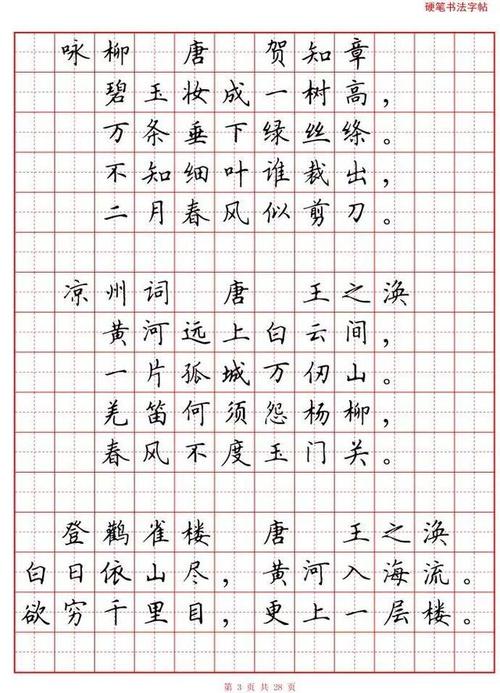 硬笔书法字帖
咏柳 唐 贺知章
碧玉妆成一树高，
万条垂下绿丝绦。
不知细叶谁裁出，
二月春风似剪刀。
凉州词 唐 王之涣
黄河远上白云间，
一片孤城万仞山。
羌笛何须怨杨柳，
春风不度玉门关。
登鹳雀楼 唐 王之涣
白日依山尽，黄河入海流。
欲穷千里目，更上一层楼。
第 3 页 共 28 页